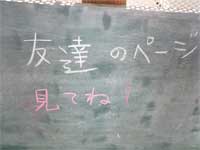 友達のページ
見てね!